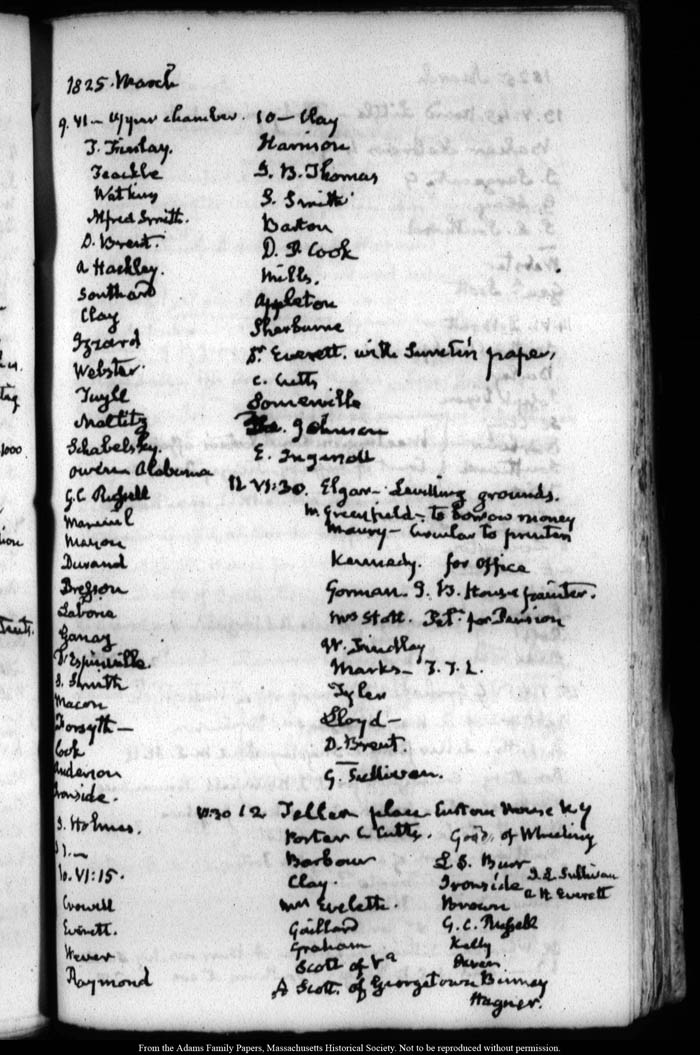 1825. March
9. VI— Upper chamber.
J. Finlay.
Teackle
Watkins
Alfred Smith.
D. Brent.
A Hackley.
Southard
Clay
Izard
Webster.
Tuyll
Maltitz
Schabelsky.
Owen Alabama
G. C. Russell
Mareuil
Durand
Bresson
Laborie
Ganay
D'Espinville
S. Smith
Macon
Forsyth—
Cook
Anderson
Ironside.
J. Holmes.
11.—
10. VI:15.
Crowell
Everett.
Wever
Raymond
10— Clay
Harrison
J. B. Thomas
S. Smith
Barton
D. P Cook
Mills.
Appleton
Sherburne
E. Everett. with papers,
C. Cutts
Somerville
Johnson
E. Ingersoll
12 VI:30. Elgar— Levelling grounds.
M. Greenfield— to borrow money
Maury— Circular to printers
Kennedy. for office
Gorman. J. B. House painter.
Mrs Stott. Pet.n for Pension
W. Findlay
Marks— T. T. L.
Tyler
Lloyd—
D. Brent.
G. Sullivan.
VI:30 12 Teller place Custom House N Y
Porter C Cutts. Good.s of Wheeling
Barbour L. S. Burr
Clay. Ironside J. L. Sullivan
A H Everett
Mrs Eveleth. Brown
Gaillard G. C. Russell
Graham Kelly
Scott of Va
A Scott. of Georgetown Binney
Wagner.
From the Adams Family Papers, Massachusetts Historical Society. Not to be reproduced without permission.